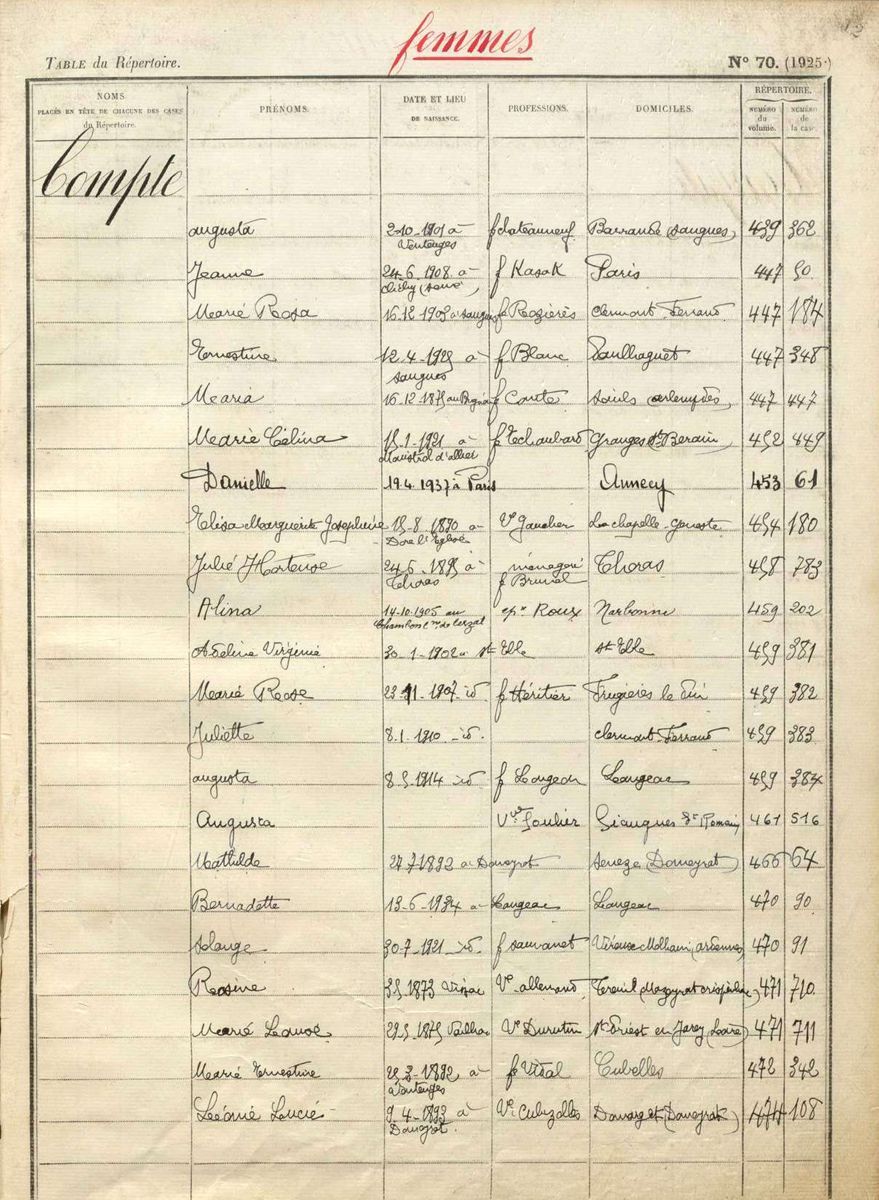 femmes
TABLE du Répertoire.
N° 70. (1925.)
NOMS
PLACÉS EN TÊTE DE CHACUNE DES CASES
du Répertoire.
PRÉNOMS.
DATE ET LIEU
DE NAISSANCE.
PROFESSIONS.
DOMICILES.
RÉPERTOIRE.
NUMÉRO
du
volume.
NUMÉRO
de
la case.
Compte
augusta 2-10-1901 à Venteuges f chateauneuf Barrande (saugues) 439 362
Jeanne 24-6-1908 à clichy (seine) f Kasak Paris 447 50
Marie Rosa 16-12-1905 à saugues f Rozières clermont-Ferrand 447 184
Ernestine 12-4-1925 à saugues f Blanc Paulhaguet 447 348
Maria 16-12-1875 au f Conte (arlempdes) 447 447
Marie Célina 15-1-1921 à Monistrol d'allier f Echaubard Granges (St Berain) 452 449
Danielle 19.4.1937 à Paris Annecy 453 61
Elisa Marguerite Josephine 15-8-1870 à Dore l'Eglise Ve Gaucher La chapelle-geneste 454 180
Julie Hortense 24-6-1895 à Thoras ménagère f Brunel Thoras 458 783
Alina 14-10-1905 au Chambon cne de Cerzat épse Roux Narbonne 459 202
Adeline Virginie 30-1-1902 à st Eble st Eble 459 381
Marie Rose 23-11-1907 id f Héritier Frugières le Pin 459 382
Juliette 8.1.1910 id. clermont-Ferrand 459 383
augusta 8-5-1914 id f Langeac 459 384
Augusta Vve Soulier Siaugues St Romain 461 516
Mathilde 27-7-1892 à Domeyrat seneze (Domeyrat) 466 64
Bernadette 13-6-1934 à Langeac Langeac 470 90
solange 30-7-1921 id. f sauvanet Vireux-Molhain (ardennes) 470 91
Rosine 1873 Vissac Ve allemand Treuil (Mazeyrat crispinhac) 471 710
Marie Louise 1875 Vve Durutin st Priest en Jarez (Loire) 471 711
Marie Ernestine 1892 à Venteuges f Vidal Cubelles 472 342
Léonie Lucie 9-4-1893 à Domeyrat. Ve Cubizolles (Domeyrat) 474 108